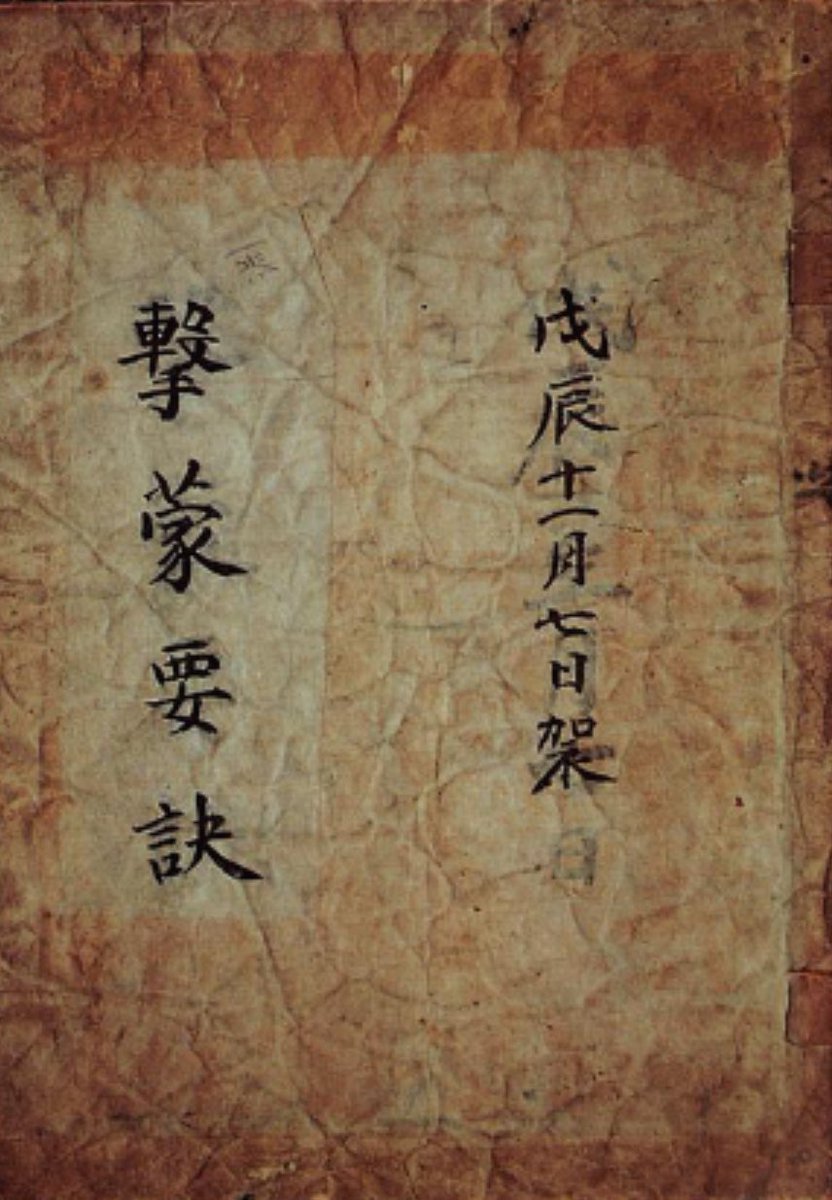 戊辰十一月七日架
擊蒙要訣